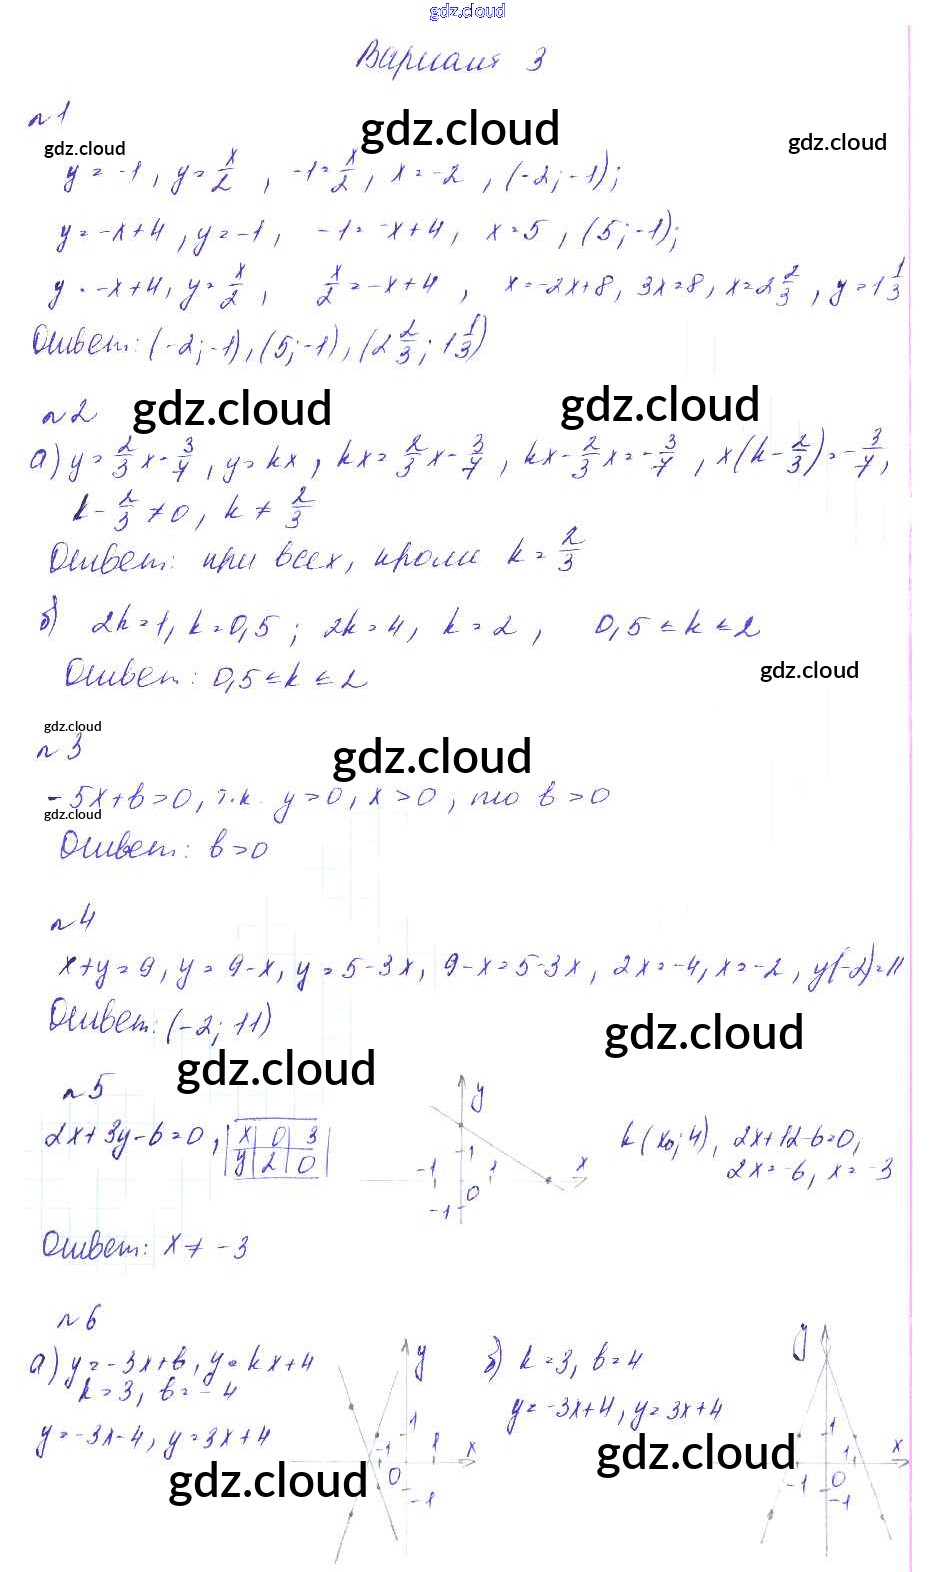 gdz.cloud
Вариант 3
n1
gdz.cloud
gdz.cloud
gdz.cloud
y = -1, y = x/2, -1 = x/2, x = -2, (-2; -1);
y = -x+4, y = -1, -1 = -x+4, x = 5, (5; -1);
y = -x+4, y = x/2, x/2 = -x+4, x = -2x+8, 3x = 8, x = 2 2/3, y = 1 1/3
Ответ: (-2; -1), (5; -1), (2 2/3; 1 1/3)
n2
gdz.cloud
gdz.cloud
а) y = 2/3 x - 3/7, y = kx, kx = 2/3 x - 3/7, kx - 2/3 x = -3/7, x(k - 2/3) = -3/7,
k - 2/3 ≠ 0, k ≠ 2/3
Ответ: при всех, кроме k = 2/3
б) 2k = 1, k = 0,5; 2k = 4, k = 2, 0,5 ≤ k ≤ 2
Ответ: 0,5 ≤ k ≤ 2
gdz.cloud
gdz.cloud
n3
gdz.cloud
-5x + b > 0, т.к. y > 0, x > 0, то b > 0
gdz.cloud
Ответ: b > 0
n4
x + y = 9, y = 9 - x, y = 5 - 3x, 9 - x = 5 - 3x, 2x = -4, x = -2, y(-2) = 11
Ответ: (-2; 11)
gdz.cloud
gdz.cloud
n5
2x + 3y - 6 = 0, x 0 3
y 2 0
y
1
-1 1 x
0
-1
k(x₀; 4), 2x + 12 - 6 = 0,
2x = -6, x = -3
Ответ: x ≠ -3
n6
а) y = -3x + b, y = kx + 4
k = 3, b = -4
y = -3x - 4, y = 3x + 4
gdz.cloud
y
1
-1 1 x
0
-1
б) k = 3, b = 4
y = -3x + 4, y = 3x + 4
gdz.cloud
y
1
1 x
-1 0
-1